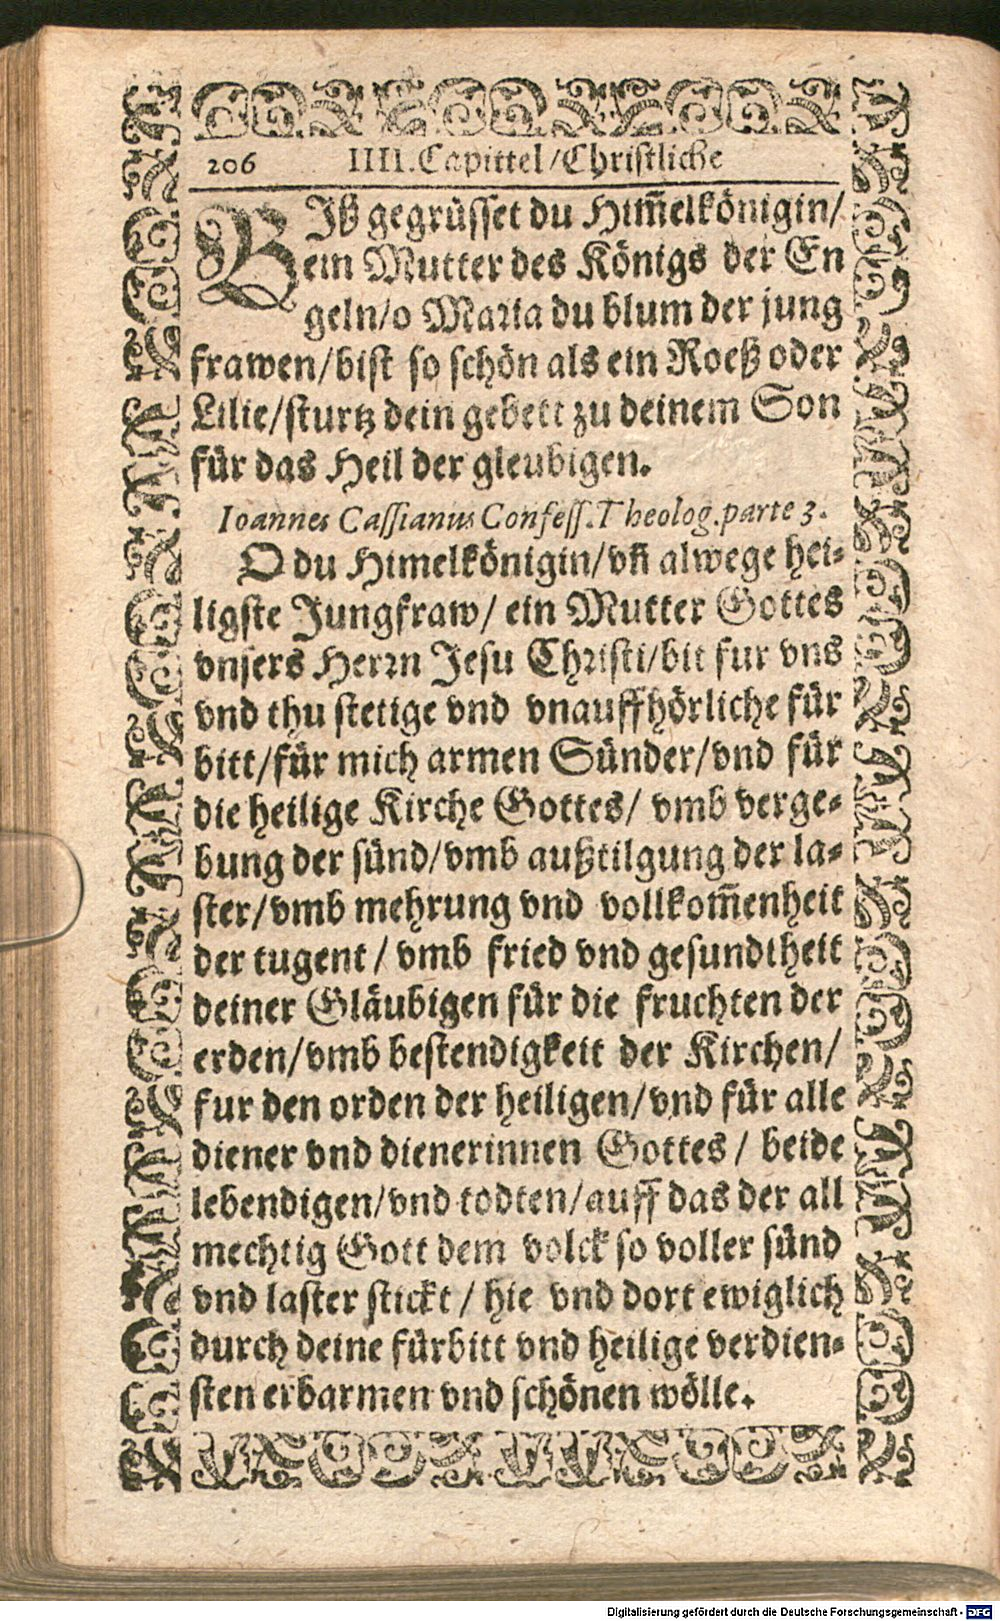 206 IIII. Capittel/Christliche
BIß gegrüsset du Him̃elkönigin/
ein Mutter des Königs der En
geln/o Maria du blum der jung
frawen/bist so schön als ein Roeß oder
Lilie/sturtz dein gebett zu deinem Son
für das Heil der gleubigen.
Ioannes Cassianus Confess. Theolog. parte 3.
O du Himelkönigin/vñ alwege hei-
ligste Jungfraw/ ein Mutter Gottes
vnsers Herrn Jesu Christi/bit fur vns
vnd thu stetige vnd vnauffhörliche für
bitt/für mich armen Sünder/vnd für
die heilige Kirche Gottes/ vmb verge-
bung der sünd/vmb außtilgung der la-
ster/vmb mehrung vnd vollkom̃enheit
der tugent/ vmb fried vnd gesundtheit
deiner Gläubigen für die fruchten der
erden/vmb bestendigkeit der Kirchen/
fur den orden der heiligen/vnd für alle
diener vnd dienerinnen Gottes/ beide
lebendigen/vnd todten/auff das der all
mechtig Gott dem volck so voller sünd
vnd laster stickt/ hie vnd dort ewiglich
durch deine fürbitt vnd heilige verdien-
sten erbarmen vnd schönen wölle.
Digitalisierung gefördert durch die Deutsche Forschungsgemeinschaft - DFG